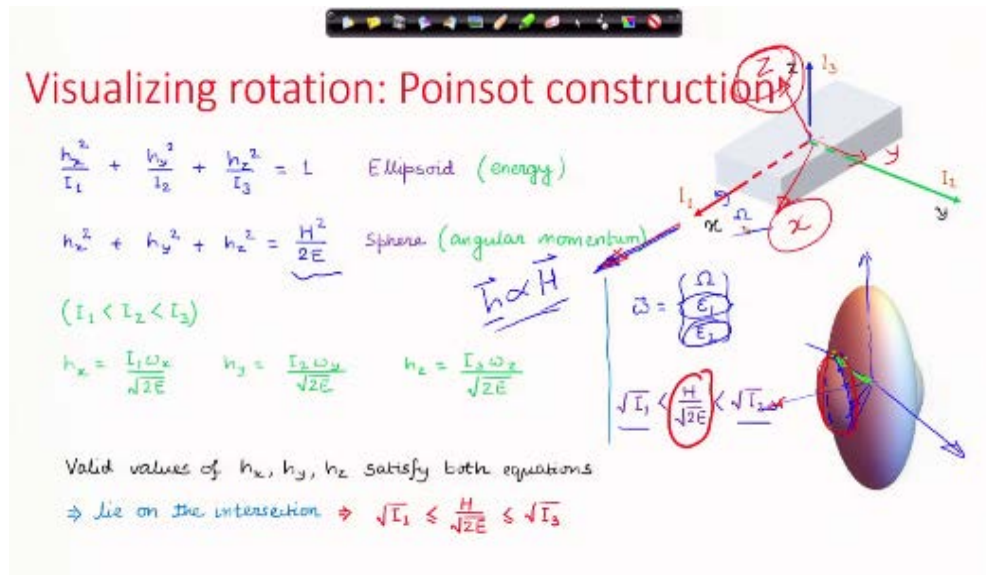 Visualizing rotation: Poinsot construction
h_x²/I₁ + h_y²/I₂ + h_z²/I₃ = 1 Ellipsoid (energy)
h_x² + h_y² + h_z² = H²/2E Sphere (angular momentum)
h⃗ ∝ H⃗
(I₁ < I₂ < I₃)
h_x = I₁ω_x/√2E h_y = I₂ω_y/√2E h_z = I₃ω_z/√2E
Valid values of h_x, h_y, h_z satisfy both equations
⇒ lie on the intersection ⇒ √I₁ ≤ H/√2E ≤ √I₃
Z z I₃
y
I₁ I₂
x Ω x y
ω⃗ = { Ω
ε₁
ε₂ }
√I₁ < H/√2E < √I₂